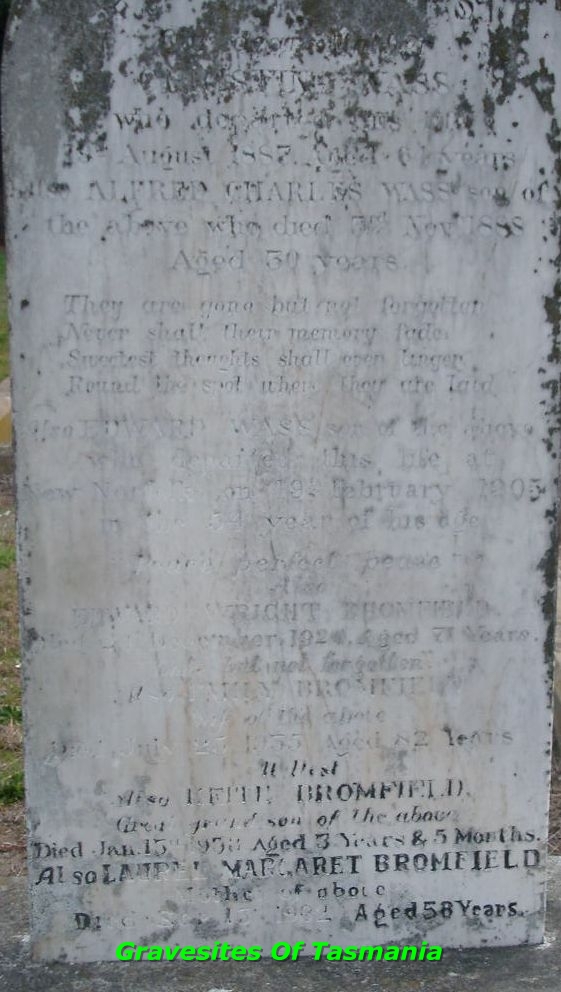 Our dear mother
WASS
who departed this life
August 1887, Aged 6 years
Also ALFRED CHARLES WASS son of
the above who died Nov 1888
Aged 30 years.
They are gone but not forgotten
Never shall their memory fade
Sweetest thoughts shall ever linger
Round the spot where they are laid
Also EDWARD WASS son of the above
who departed this life at
New Norfolk on 19th February 1905
in the 54 year of his age
Peace perfect peace
Also
EDWARD WRIGHT BROMFIELD.
Aged 71 Years.
but not forgotten
Also EMILY BROMFIELD
wife of the above
Died July 25 1935 Aged 82 Years
At Rest
Also KEITH BROMFIELD.
Great grand son of the above
Died Jan. 13th 1938 Aged 3 Years & 5 Months.
Also LAUREL MARGARET BROMFIELD
Mother of above
Died Aged 58 Years.
Gravesites Of Tasmania